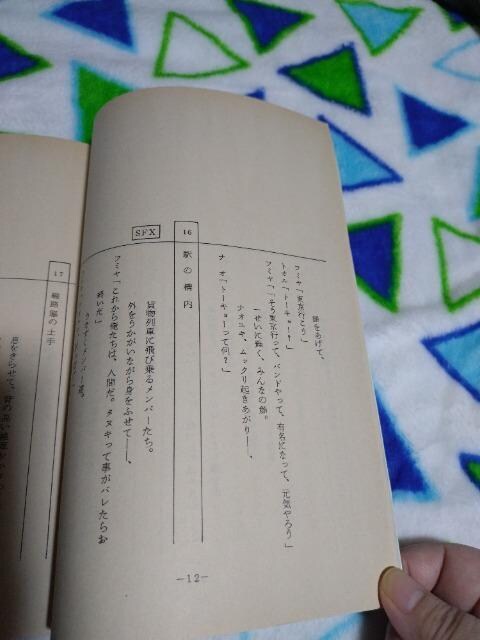 顔をあげて、
フミヤ「東京行こう」
トオル「トーキョー？」
フミヤ「そう東京行って、バンドやって、有名になって、元気やろう」
一せいに輝く、みんなの顔。
ナオユキ、ムックリ起きあがり──、
ナオ「トーキョーって何？」
16
駅の構内
SFX
貨物列車に飛び乗るメンバーたち。
外をうかがいながら身をふせて──、
フミヤ「これから俺たちは、人間だ。タヌキって事がバレたらお
終いだ」
うなずくメンバー達。
－12－
17
線路際の土手
息をきらせて、背の高い雑草